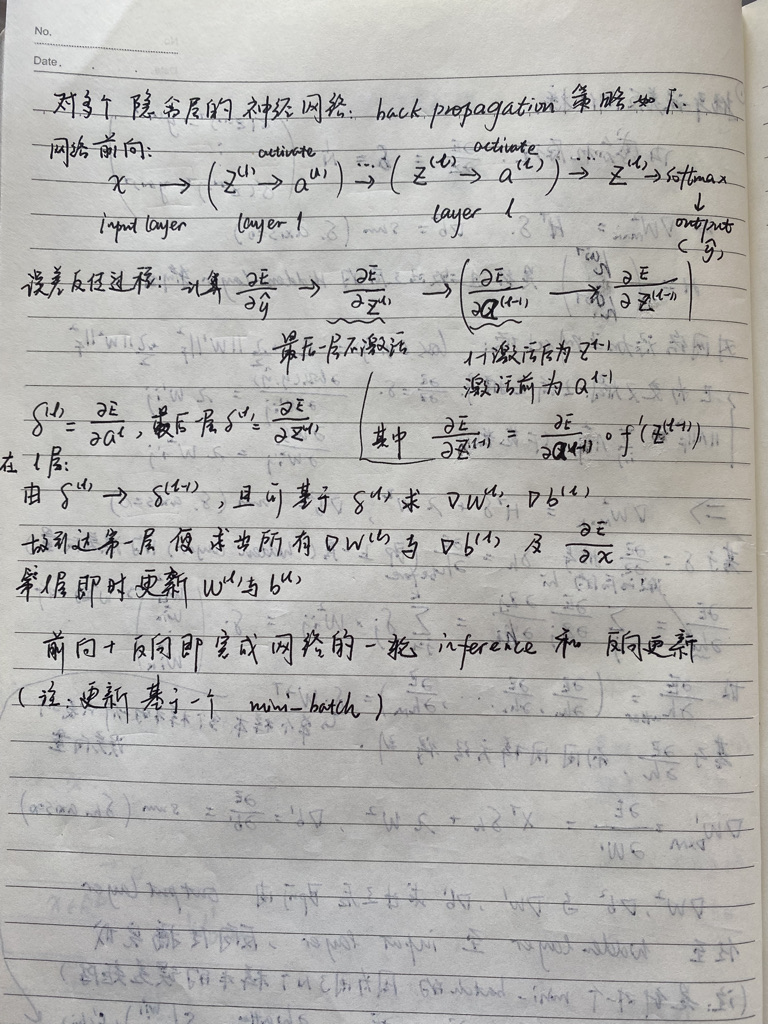 No.
Date.
对多个隐含层的神经网络: back propagation 策略如下.
网络前向:
activate activate
x → (Z^(1) → a^(1)) ⇢ (Z^(l) → a^(l)) ⇢ Z^(L) → softmax
↓
input layer layer 1 layer l output
(ŷ)
误差反传过程: 计算 ∂E/∂ŷ → ∂E/∂Z^(L) → (∂E/∂a^(l-1) → ∂E/∂Z^(l-1))
最后一层不激活 l-1激活后为Z^(l-1)
激活前为a^(l-1)
δ^(l) = ∂E/∂a^l, 最后一层δ^(L) = ∂E/∂Z^(L) 其中 ∂E/∂Z^(l-1) = ∂E/∂a^(l-1) ∘ f'(Z^(l-1))
在 l 层:
由 δ^(l) → δ^(l-1), 且可基于 δ^(l) 求 ∇W^(l), ∇b^(l)
故到达第一层便求出所有∇W^(l)与∇b^(l) 及 ∂E/∂x
第l层即时更新 W^(l)与b^(l)
前向+反向即完成网络的一轮 inference 和 反向更新
(注: 更新基于一个 mini-batch)